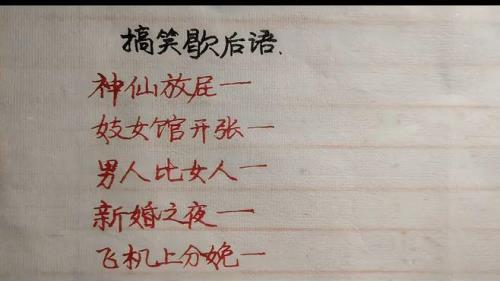 搞笑歇后语.
神仙放屁一
妓女馆开张一
男人比女人一
新婚之夜一
飞机上分娩一